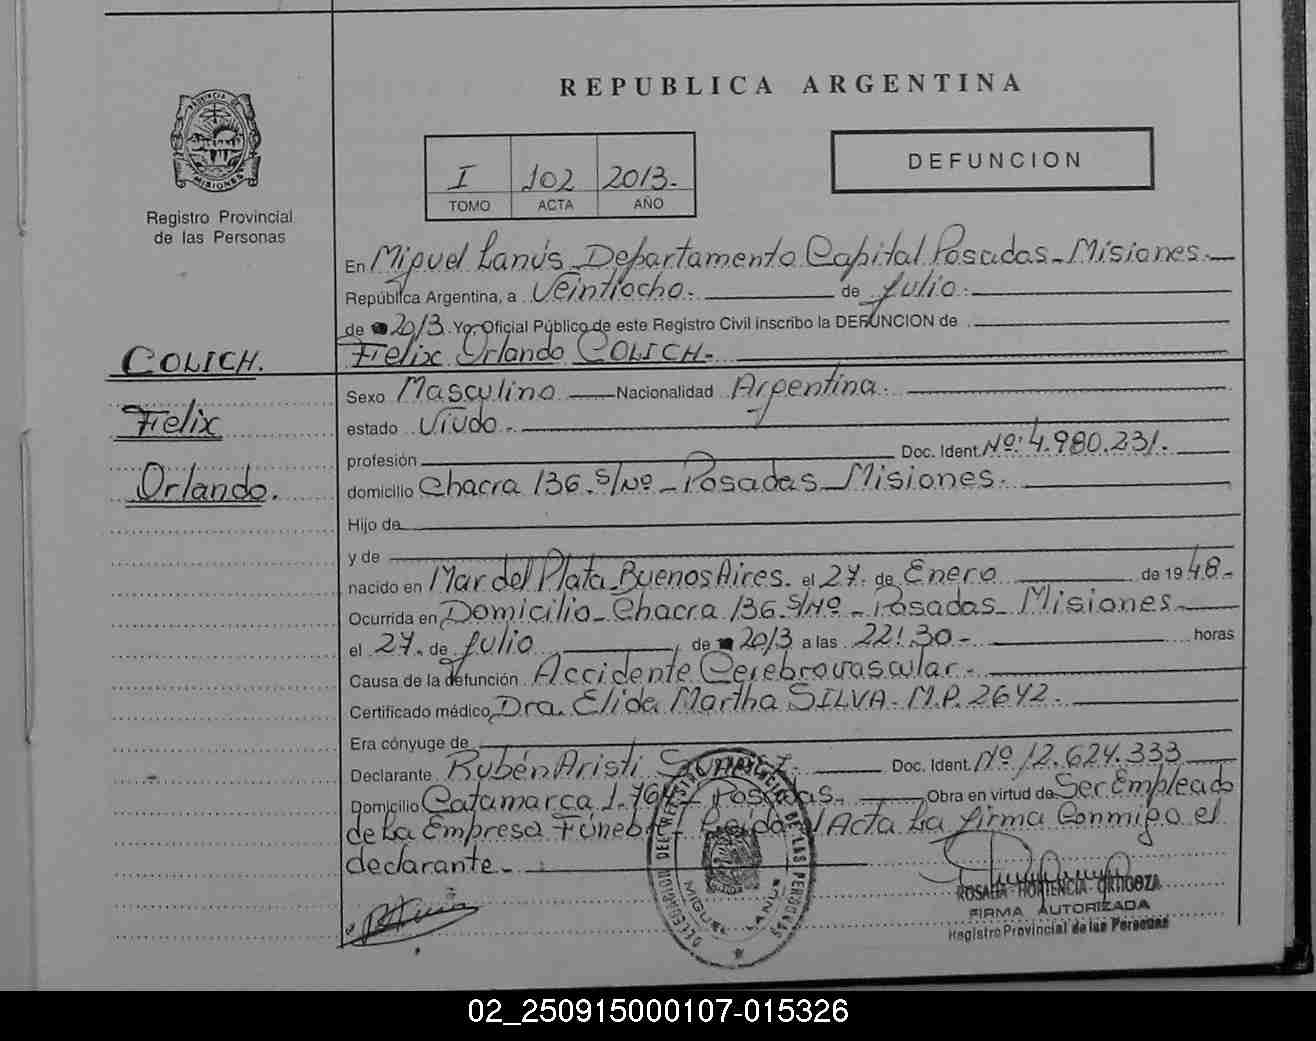 REPUBLICA ARGENTINA
PROVINCIA DE
MISIONES
Registro Provincial
de las Personas
I 102 2013.-
TOMO ACTA AÑO
DEFUNCION
En Miguel Lanús Departamento Capital Posadas - Misiones.-
República Argentina, a Veintiocho.- de julio.-
de 2013. Yo, Oficial Público de este Registro Civil inscribo la DEFUNCION de
Felix Orlando COLICH.-
COLICH.
Felix
Orlando.
Sexo Masculino Nacionalidad Argentina.-
estado Viudo.-
profesión Doc. Ident. Nº: 4.980.231.-
domicilio Chacra 136. S/Nº - Posadas - Misiones.-
Hijo de
y de
nacido en Mar del Plata - Buenos Aires. el 27. de Enero de 1948.-
Ocurrida en Domicilio - Chacra 136. S/Nº - Posadas - Misiones.-
el 27. de julio de 2013 a las 22:30.- horas
Causa de la defunción Accidente Cerebrovascular.-
Certificado médico Dra. Elida Martha SILVA. M.P. 2642.-
Era cónyuge de
Declarante Rubén Aristi Doc. Ident. Nº 12.624.333
Domicilio Catamarca Posadas.- Obra en virtud de Ser Empleado
de La Empresa Fúnebre Leida el Acta La firma Conmigo el
declarante.-
DELEGACION DEL REGISTRO PROVINCIAL DE LAS PERSONAS
MIGUEL LANUS
ROSALIA HORTENCIA ORTIGOZA
FIRMA AUTORIZADA
Registro Provincial de las Personas
02_250915000107-015326